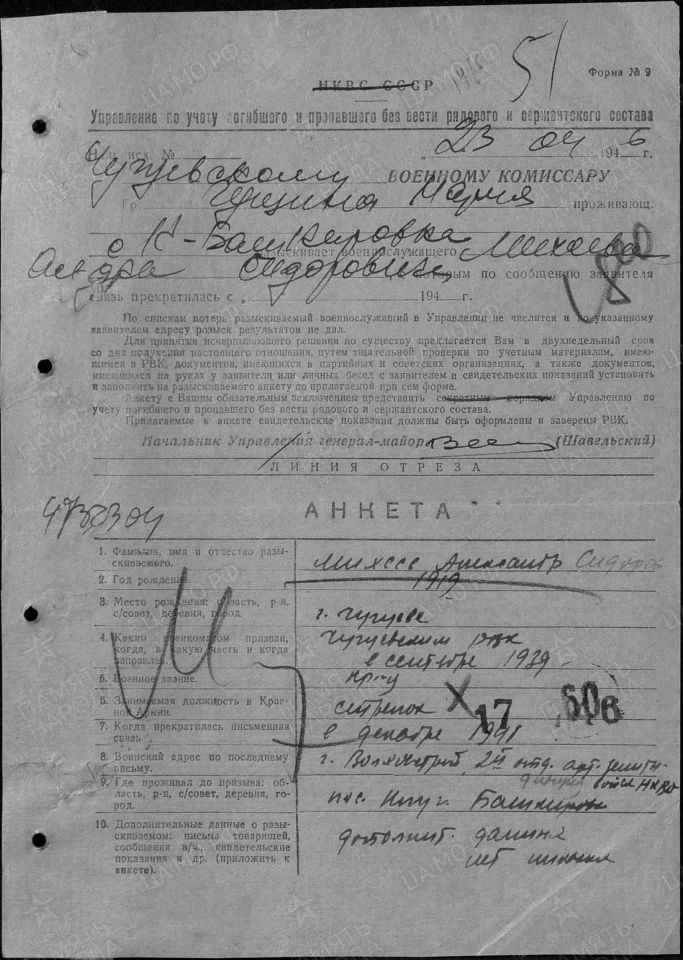 51
Форма № 9
НКВС СССР
Управление по учету погибшего и пропавшего без вести рядового и сержантского состава
Исх. № „23 04 1946 г.
Чугуевскому ВОЕННОМУ КОМИССАРУ
Гр. Мария проживающ.
с К-Башкировка
разыскивает военнослужащего Михеева
Сидоровича, которым по сообщению заявителя
связь прекратилась с „ 194 г.
По спискам потерь разыскиваемый военнослужащий в Управлении не числится и по указанному
заявителем адресу розыск результатов не дал.
Для принятия исчерпывающего решения по существу предлагается Вам в двухнедельный срок
со дня получения настоящего отношения, путем тщательной проверки по учетным материалам, имею-
щимся в РВК, документов, имеющихся в партийных и советских организациях, а также документов,
имеющихся на руках у заявителя или личных бесед с заявителем и свидетельских показаний установить
и заполнить на разыскиваемого анкету по прилагаемой при сем форме.
Анкету с Вашим обязательным заключением представить секретным порядком Управлению по
учету погибшего и пропавшего без вести рядового и сержантского состава.
Прилагаемые к анкете свидетельские показания должны быть оформлены и заверены РВК.
Начальник Управления генерал-майор (Шавельский)
ЛИНИЯ ОТРЕЗА
АНКЕТА
1. Фамилия, имя и отчество разы-
скиваемого.
Александр Сидоров
2. Год рождения.
1919
3. Место рождения: область, р-н,
с/совет, деревня, город.
г. Чугуеве
4. Каким военкоматом призван,
когда, в какую часть и когда
направлен.
Чугуевским рвк
в сентябре 1939
5. Военное звание.
кр-ц
6. Занимаемая должность в Крас-
ной Армии.
стрелок
7. Когда прекратилась письменная
связь.
в декабре 1941
17 606
8. Воинский адрес по последнему
письму.
г. Волховстрой, 2й отд. арт. зенитн-
войск НКВД
9. Где проживал до призыва: об-
ласть, р-н, с/совет, деревня, го-
род.
10. Дополнительные данные о разы-
скиваемом: письма товарищей,
сообщения в/ч., свидетельские
показания и др. (приложить к
анкете).
дополнит. данных
нет